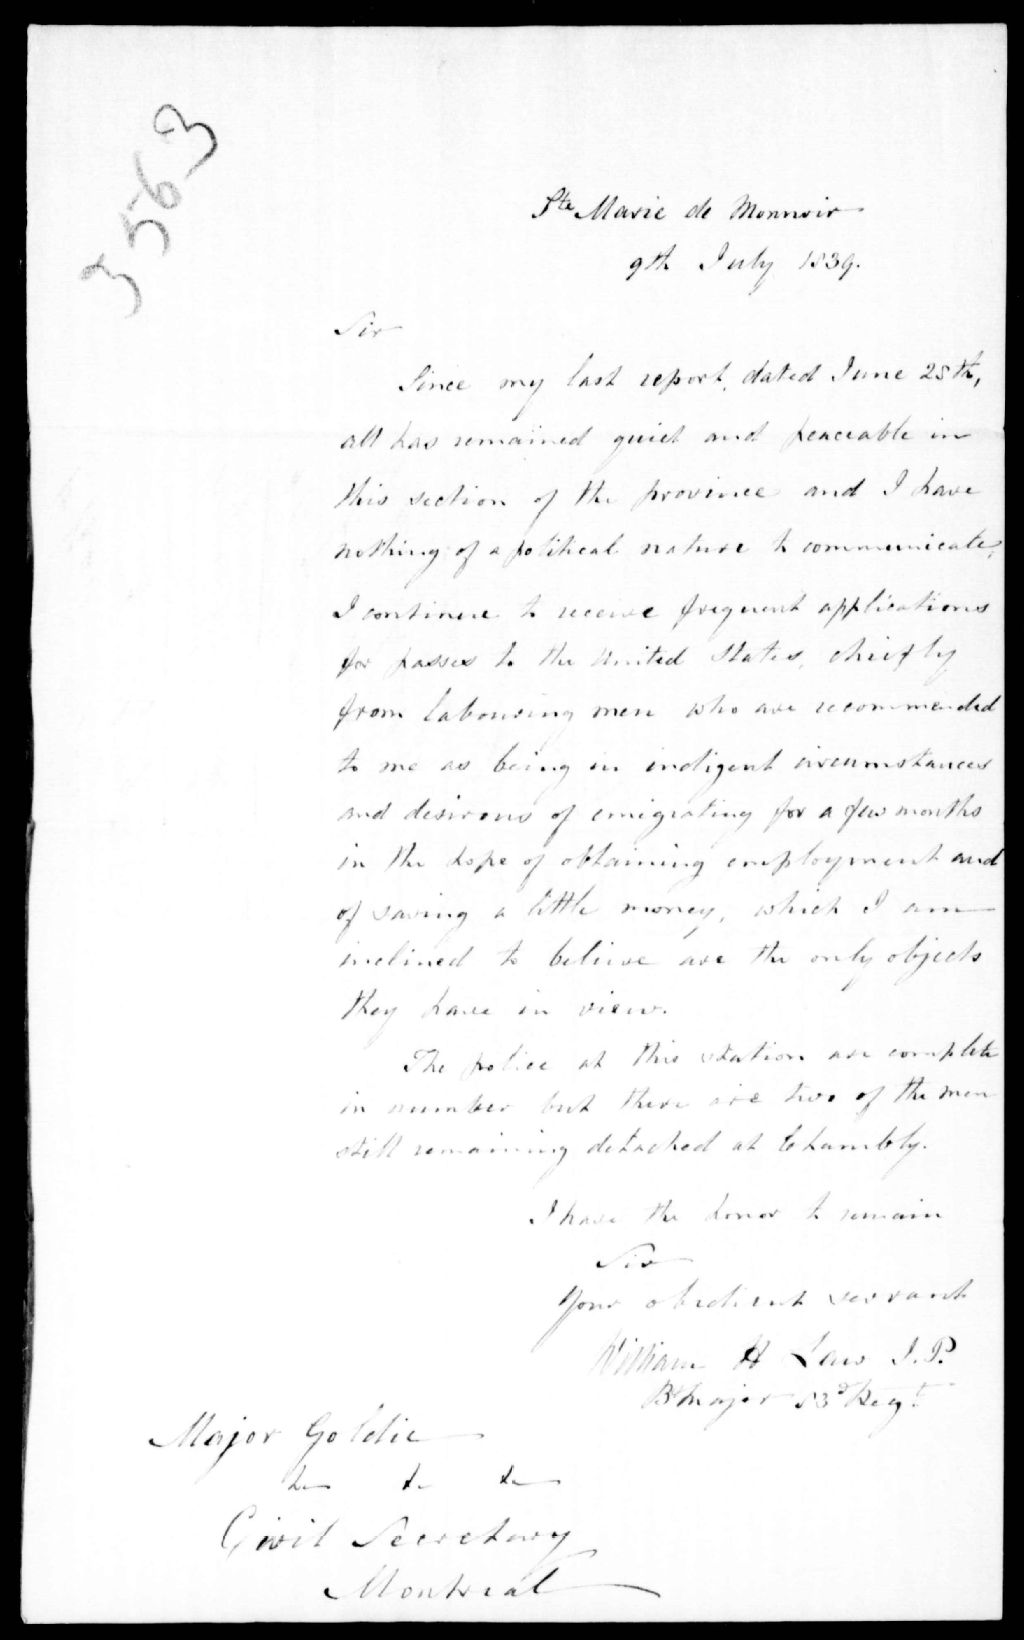 3563
Ste Marie de Monnoir
9th July 1839.
Sir
Since my last report, dated June 25th,
all has remained quiet and peaceable in
this section of the province and I have
nothing of a political nature to communicate,
I continue to receive frequent applications
for passes to the United States, chiefly
from labouring men who are recommended
to me as being in indigent circumstances
and desirous of emigrating for a few months
in the hope of obtaining employment and
of saving a little money, which I am
inclined to believe are the only objects
they have in view.
The police at this station are complete
in number but there are two of the men
still remaining detached at Chambly.
I have the honor to remain
Sir
Your obedient servant
William H Law J.P.
Bt Major 83d Regt
Major Goldie
&c &c &c
Civil Secretary
Montreal